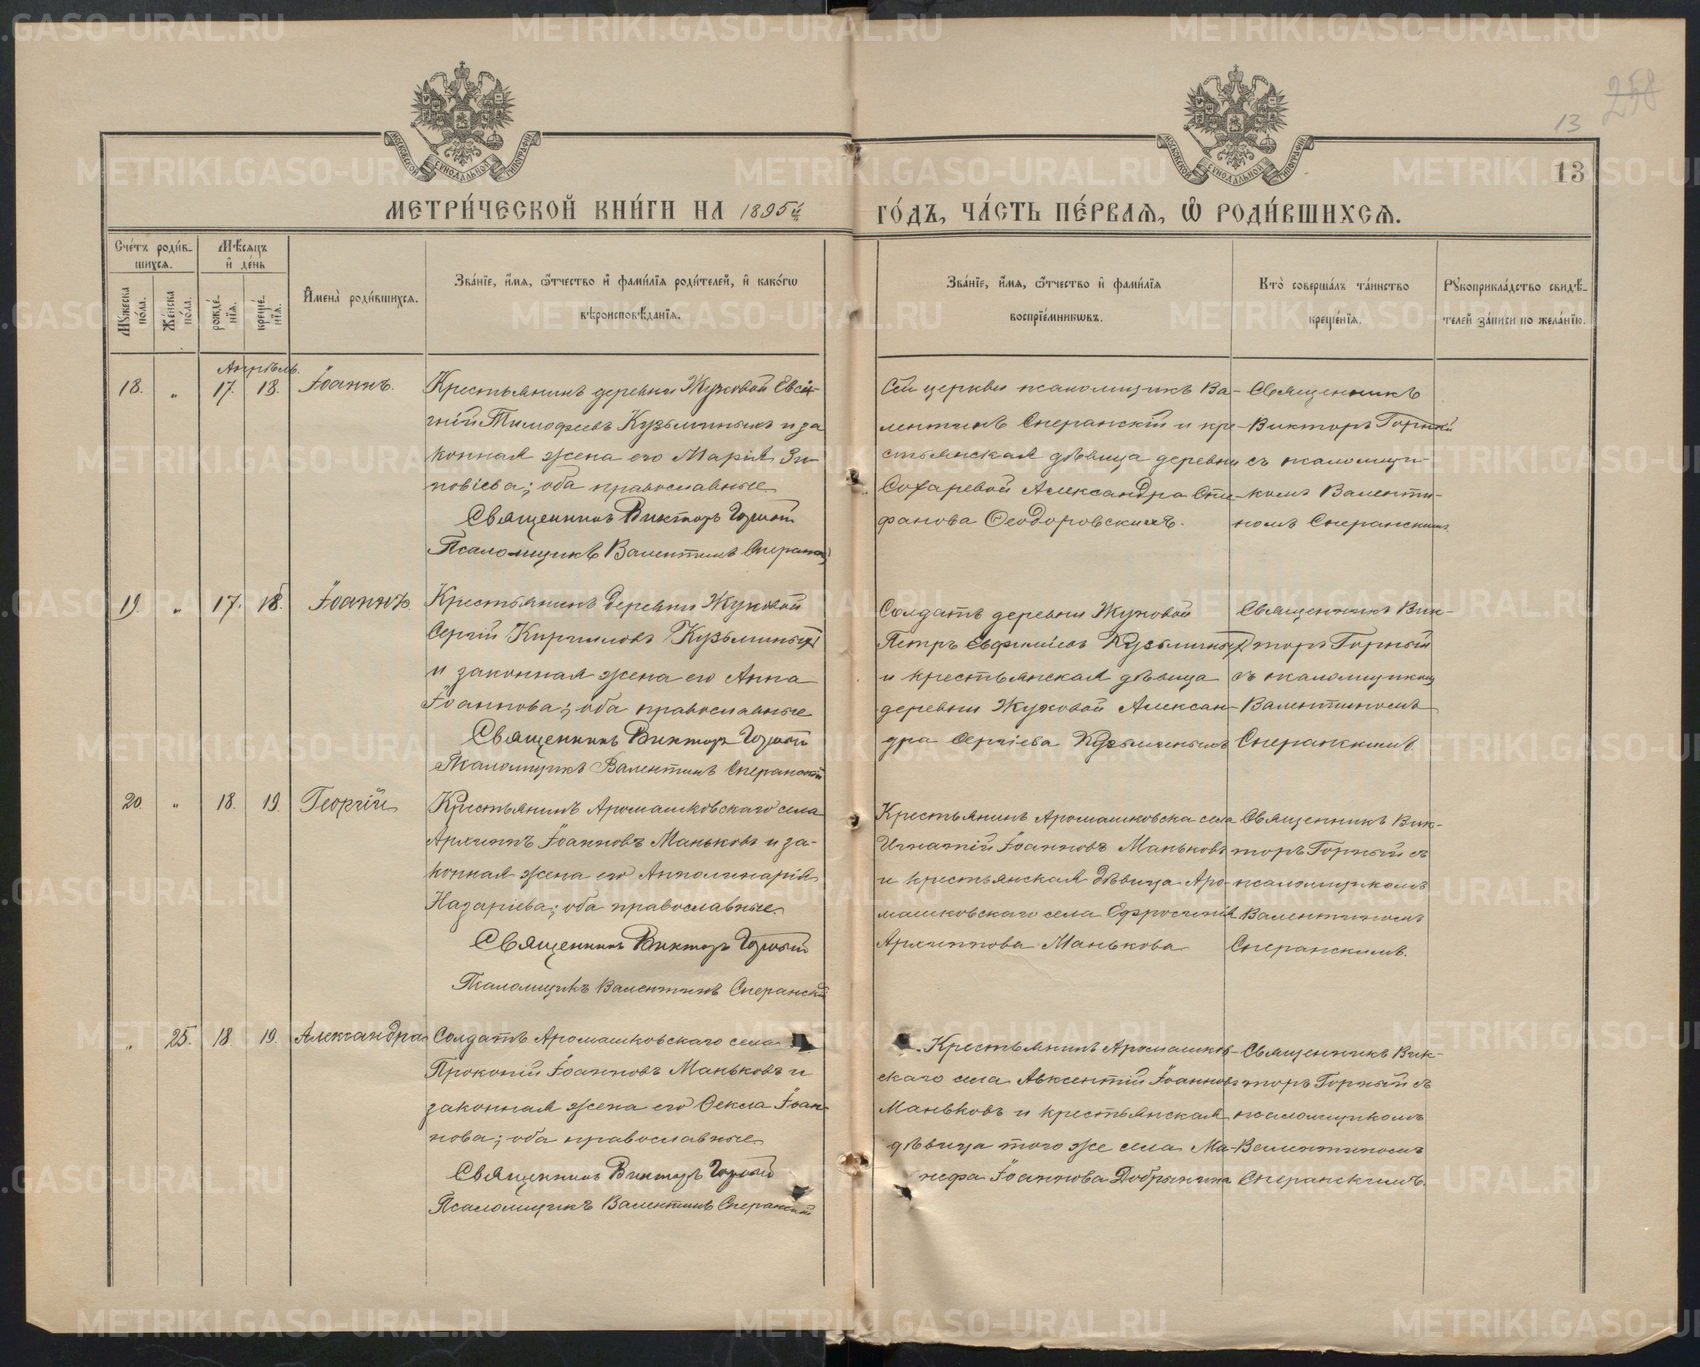 258
13
13
МОСКОВСКОЙ СѴНОДАЛЬНОЙ ТИПОГРАФІИ
МОСКОВСКОЙ СѴНОДАЛЬНОЙ ТИПОГРАФІИ
МЕТРИ́ЧЕСКОЙ КНИ́ГИ НА 1895й
ГО́ДЪ, ЧА́СТЬ ПЕ́РВАЯ, Ѡ҆ РОДИ́ВШИХСЯ.
Сче́тъ роди́в-
шихся.
Мꙋ́жеска по́ла.
Же́нска по́ла.
Мѣ́сяцъ
и҆ де́нь
рожде́-нїя.
креще́-нїя.
И҆мена̀ роди́вшихся.
Зва́нїе, и҆́мя, ѻ҆́тчество и҆ фами́лїя роди́телей, и҆ како́гѡ
вѣроисповѣ́данїя.
Зва́нїе, и҆́мя, ѻ҆́тчество и҆ фами́лїя
воспрїе́мникѡвъ.
Кто̀ соверша́лъ та́инство
креще́нїя.
Рꙋкоприкла́дство свидѣ́-
телей за́писи по жела́нїю.
Апрѣль.
18. „ 17. 18. Іоаннъ.
Крестьянинъ деревни Жуковой Евсиг-
ній Тимофеевъ Кузьминыхъ и за
конная жена его Марія Зи-
новіева; оба православные
Священникъ Викторъ Горный
Псаломщикъ Валентинъ Сперанскій
Сей церкви псаломщикъ Ва-
лентинъ Сперанскій и кре-
стьянская дѣвица деревни
Сохаревой Александра Сте-
фанова Ѳеодоровскихъ.
Священникъ
Викторъ Горный
съ псаломщи-
комъ Валенти-
номъ Сперанскимъ.
19. „ 17. 18. Іоаннъ.
Крестьянинъ деревни Жуковой
Сергій Кирилловъ Кузьминыхъ
и законная жена его Анна
Іоаннова; оба православные
Священникъ Викторъ Горный
Псаломщикъ Валентинъ Сперанскій
Солдатъ деревни Жуковой
Петръ Евфиміевъ Кузьминыхъ
и крестьянская дѣвица
деревни Жуковой Алексан-
дра Сергіева Кузьминыхъ
Священникъ Вик-
торъ Горный
съ псаломщикомъ
Валентиномъ
Сперанскимъ.
20. „ 18. 19. Георгій
Крестьянинъ Аромашковскаго села
Архиппъ Іоанновъ Маньковъ и за-
конная жена его Апполинарія
Назаріева; оба православные
Священникъ Викторъ Горный
Псаломщикъ Валентинъ Сперанскій
Крестьянинъ Аромашковска села
Игнатій Іоанновъ Маньковъ
и крестьянская дѣвица Аро-
машковскаго села Ефросинія
Архиппова Манькова
Священникъ Вик-
торъ Горный съ
псаломщикомъ
Валентиномъ
Сперанскимъ.
„ 25. 18. 19. Александра
Солдатъ Аромашковскаго села
Прокопій Іоанновъ Маньковъ и
законная жена его Ѳекла Іоан-
нова; оба православные
Священникъ Викторъ Горный
Псаломщикъ Валентинъ Сперанскій
Крестьянинъ Аромашков-
скаго села Авксентій Іоанновъ
Маньковъ и крестьянская
дѣвица того же села Ма-
нефа Іоаннова Добрынина
Священникъ Вик-
торъ Горный съ
псаломщикомъ
Валентиномъ
Сперанскимъ.
METRIKI.GASO-URAL.RU